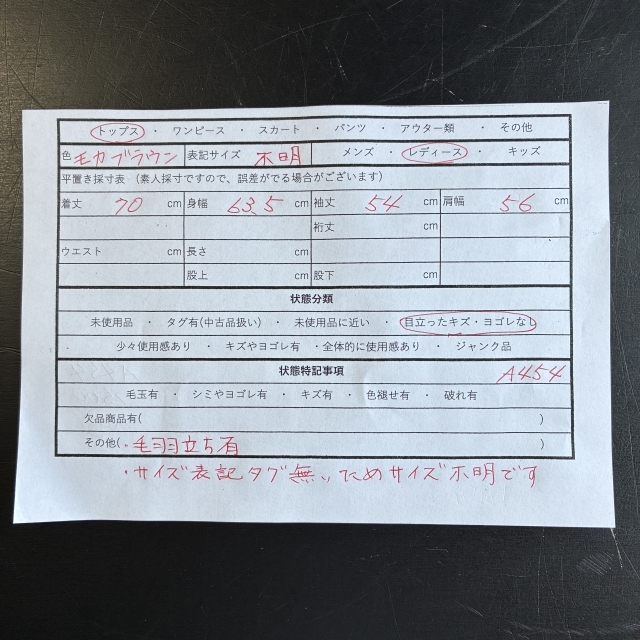 トップス ・ ワンピース ・ スカート ・ パンツ ・ アウター類 ・ その他
色 モカブラウン 表記サイズ 不明 メンズ ・ レディース ・ キッズ
平置き採寸表 (素人採寸ですので、誤差がでる場合がございます)
着丈 70 cm 身幅 63.5 cm 袖丈 54 cm 肩幅 56 cm
裄丈 cm
ウエスト cm 長さ cm
股上 cm 股下 cm
状態分類
未使用品 ・ タグ有(中古品扱い) ・ 未使用品に近い ・ 目立ったキズ・ヨゴレなし
少々使用感あり ・ キズやヨゴレ有 ・全体的に使用感あり ・ ジャンク品
状態特記事項 A454
毛玉有 ・ シミやヨゴレ有 ・ キズ有 ・ 色褪せ有 ・ 破れ有
欠品商品有( )
その他(・毛羽立ち有 )
・サイズ表記タグ無いためサイズ不明です